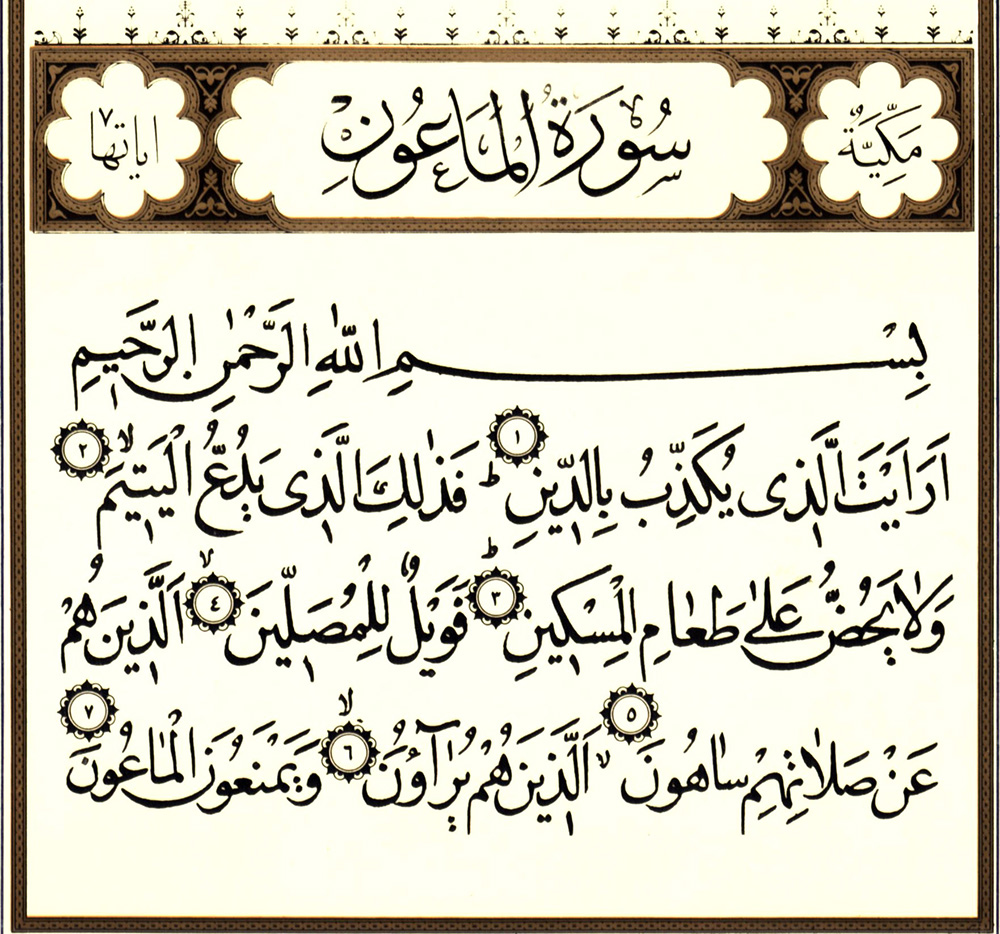 مَكِّيَّةٌ سُورَةُ الْمَاعُونِ اياتها ٧
بِسْمِ اللّٰهِ الرَّحْمٰنِ الرَّحِيمِ
اَرَاَيْتَ الَّذِى يُكَذِّبُ بِالدِّينِ ١ ط فَذٰلِكَ الَّذِى يَدُعُّ الْيَتِيمَ ٢ لا
وَلَا يَحُضُّ عَلٰى طَعَامِ الْمِسْكِينِ ٣ ط فَوَيْلٌ لِلْمُصَلِّينَ ٤ لا اَلَّذِينَ هُمْ
عَنْ صَلَاتِهِمْ سَاهُونَ ٥ لا اَلَّذِينَ هُمْ يُرَٓاؤُنَ ٦ لا وَيَمْنَعُونَ الْمَاعُونَ ٧